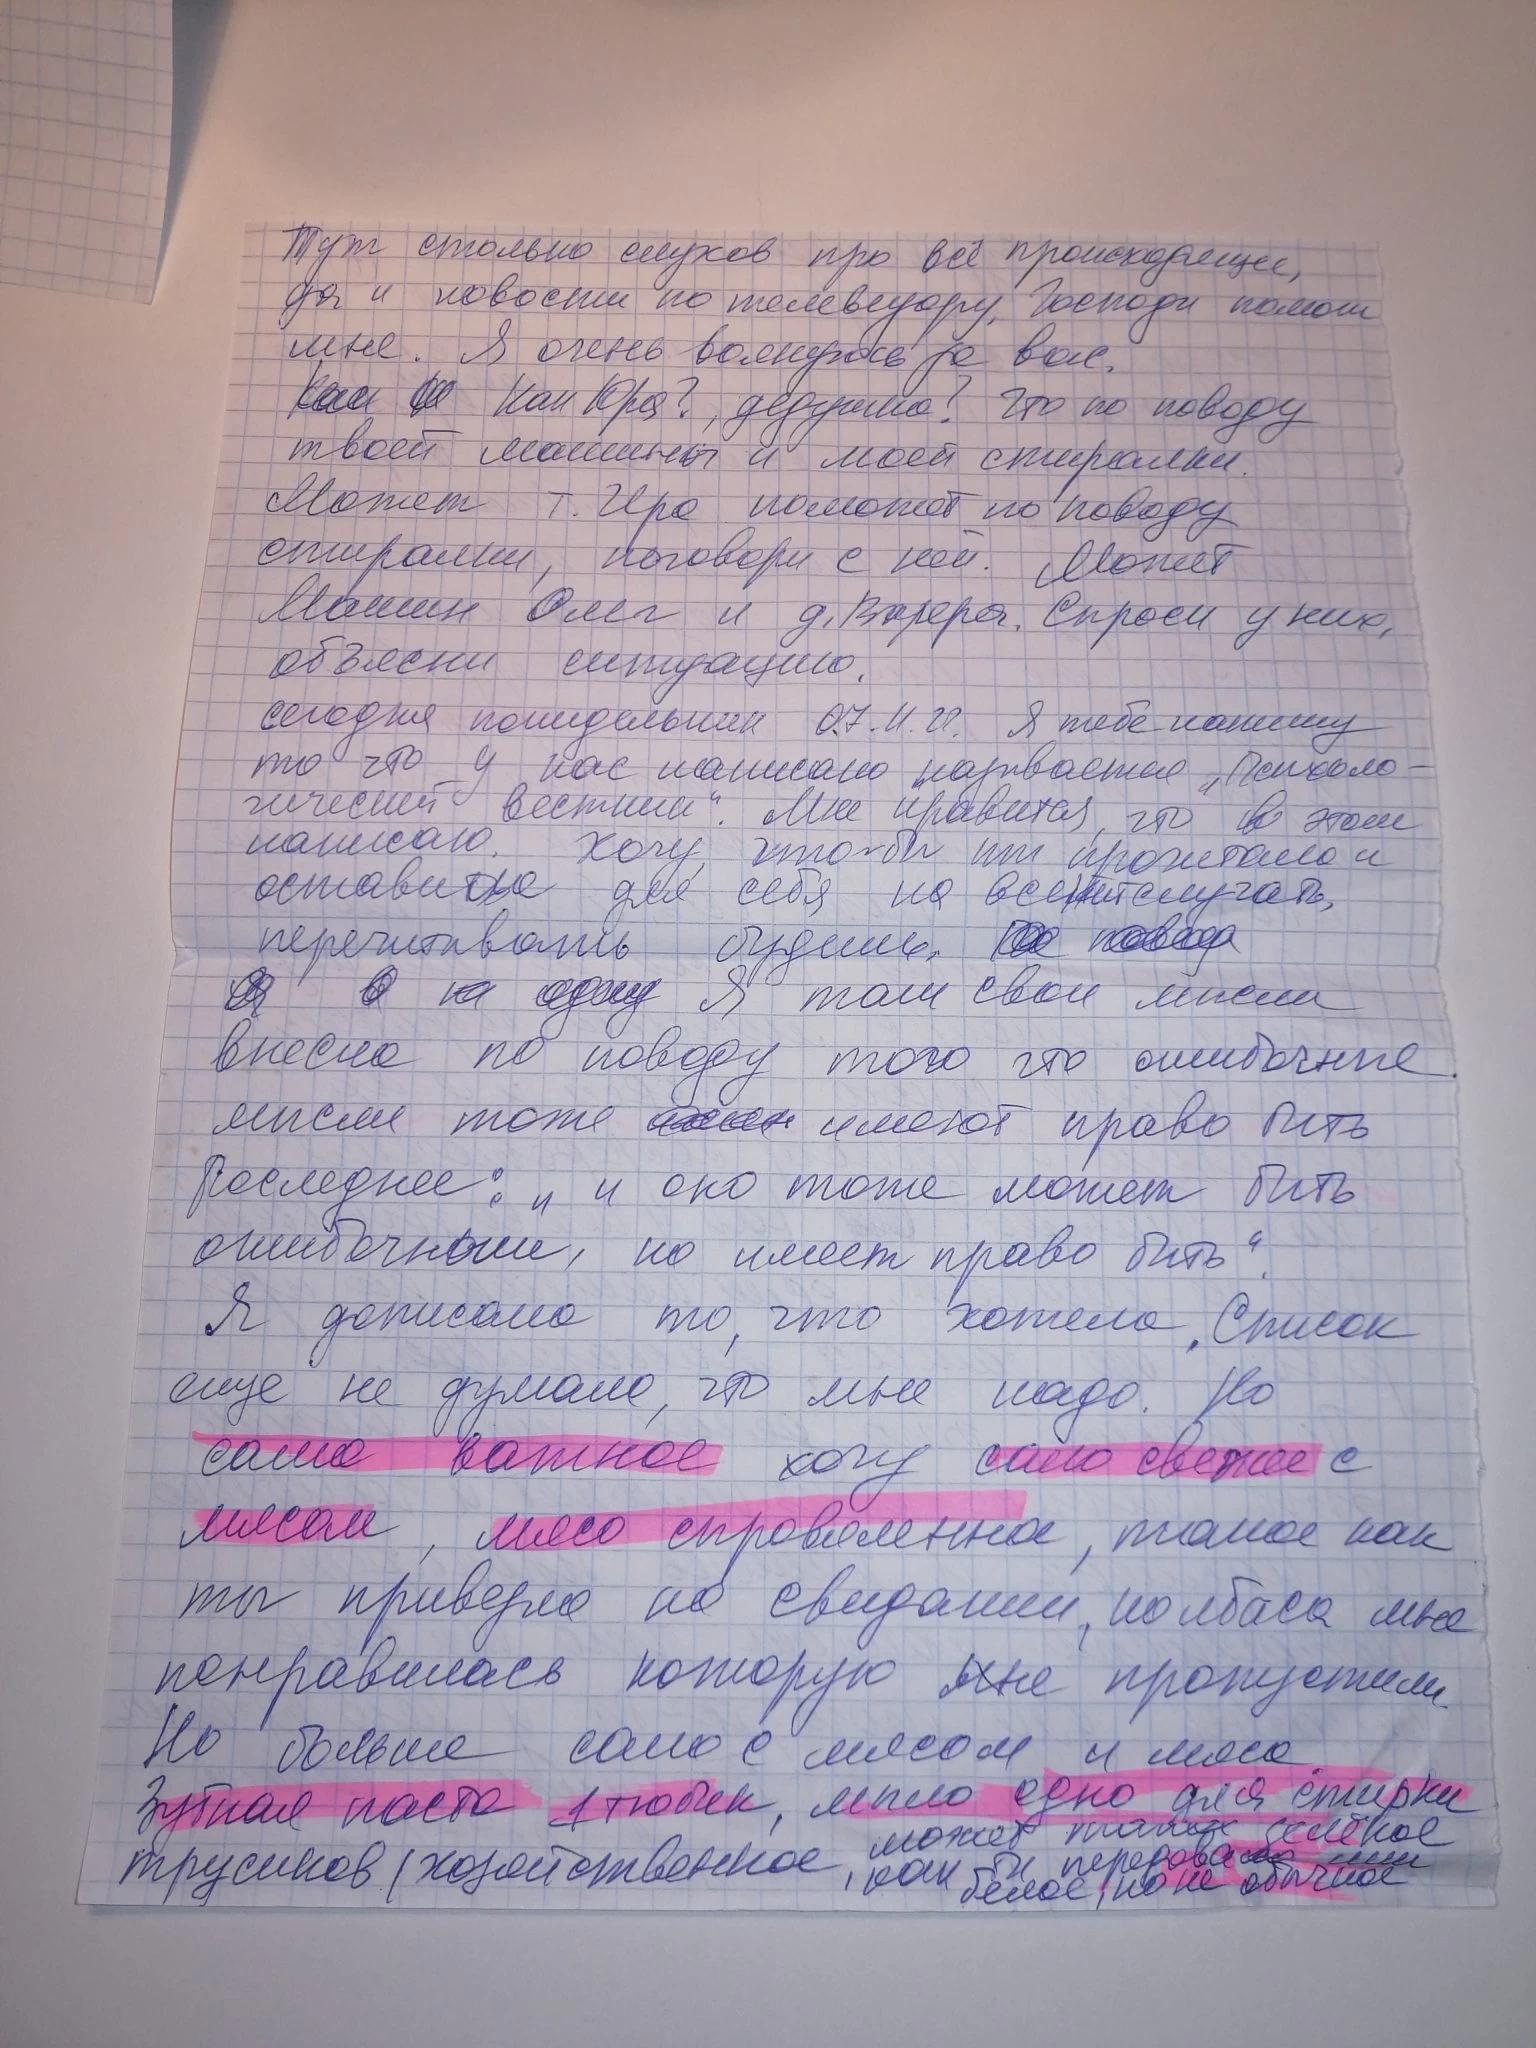 Тут столько слухов про всё происходящее,
да и новости по телевизору, Господи помоги
мне. Я очень волнуюсь за вас.
Как Юра?, дедушка? Что по поводу
твоей машины и моей стиралки.
Может т. Ира поможет по поводу
стиралки, поговори с ней. Может
Машин Олег и д. Валера. Спроси у них,
объясни ситуацию.
сегодня понидельник 07.11.22. Я тебе напишу
то что у нас написано называется "Психоло-
гический вестник". Мне нравится, что в этом
написано. Хочу, что-бы ты прочитала и
оставила для себя на всякий случай,
перечитывать будешь.
Я там свои мысли
внесла по поводу того что ошибочные
мысли тоже имеют право быть
Последнее: "и оно тоже может быть
ошибочным, но имеет право быть".
Я дописала то, что хотела. Список
еще не думала, что мне надо. Но
само важное хочу сало свежее с
мясом, мясо справяленное, такое как
ты привезла на свидании, колбаса мне
понравилась которую мне пропустили.
Но больше сало с мясом и мясо
Зубная паста 1 тюбик, мыло одно для стирки
трусиков (хозяйственное, может такое зелёное
как бы передавала или
белое, но не обычное